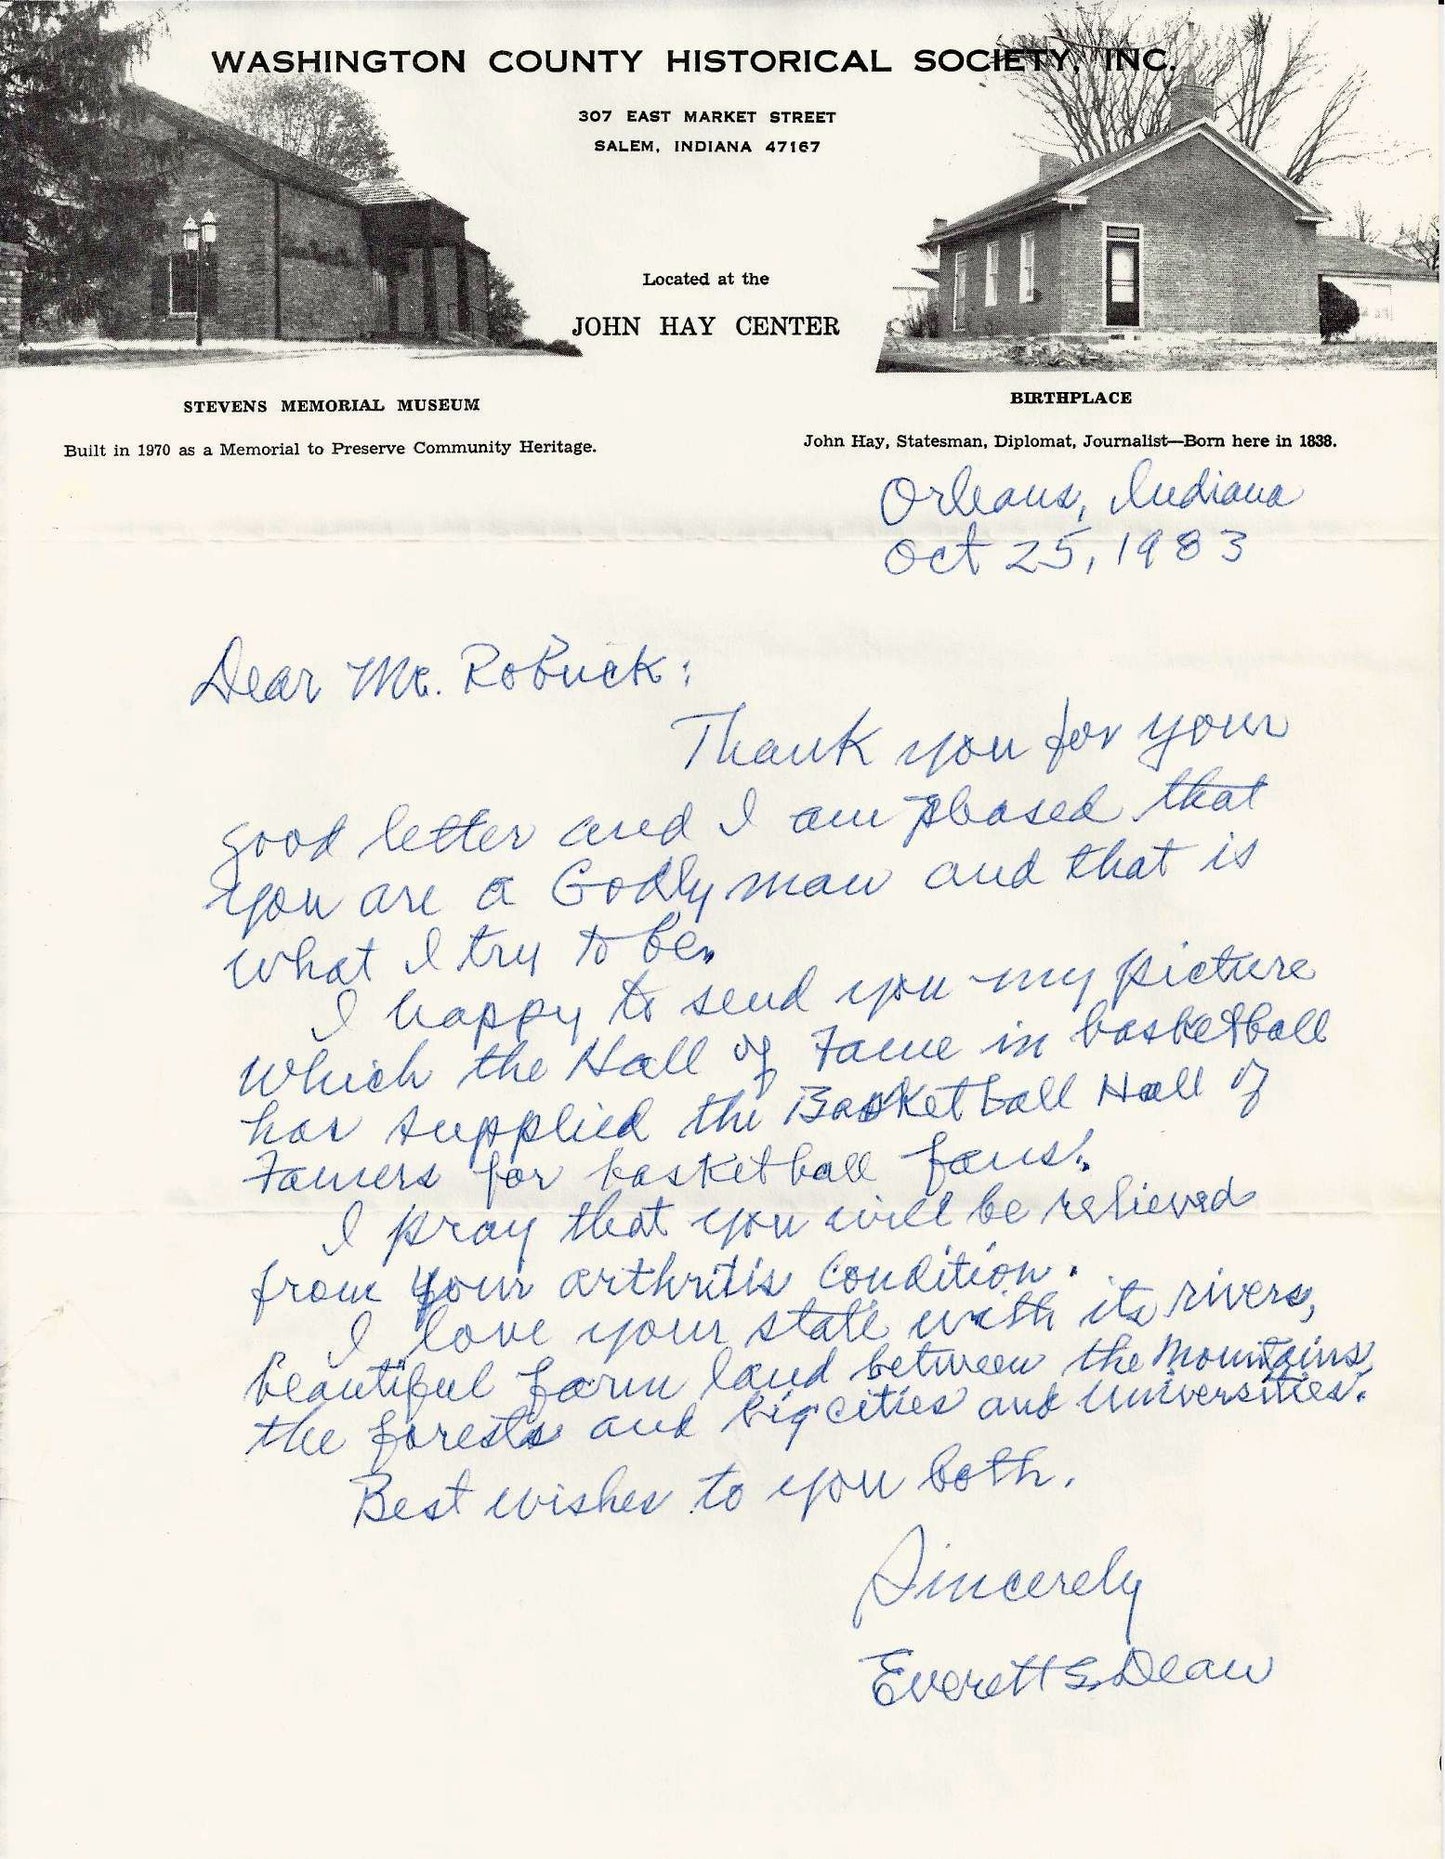 WASHINGTON COUNTY HISTORICAL SOCIETY, INC.
307 EAST MARKET STREET
SALEM, INDIANA 47167
Located at the
JOHN HAY CENTER
STEVENS MEMORIAL MUSEUM
Built in 1970 as a Memorial to Preserve Community Heritage.
BIRTHPLACE
John Hay, Statesman, Diplomat, Journalist—Born here in 1838.
Orleans, Indiana
Oct 25, 1983
Dear Mr. Robuck:
Thank you for your
good letter and I am pleased that
you are a Godly man and that is
what I try to be.
I happy to send you my picture
which the Hall of Fame in basketball
has supplied the Basketball Hall of
Famers for basketball fans.
I pray that you will be relieved
from your arthritis condition.
I love your state with its rivers,
beautiful farm land between the mountains,
the forests and big cities and universities.
Best wishes to you both.
Sincerely
Everett S. Dean